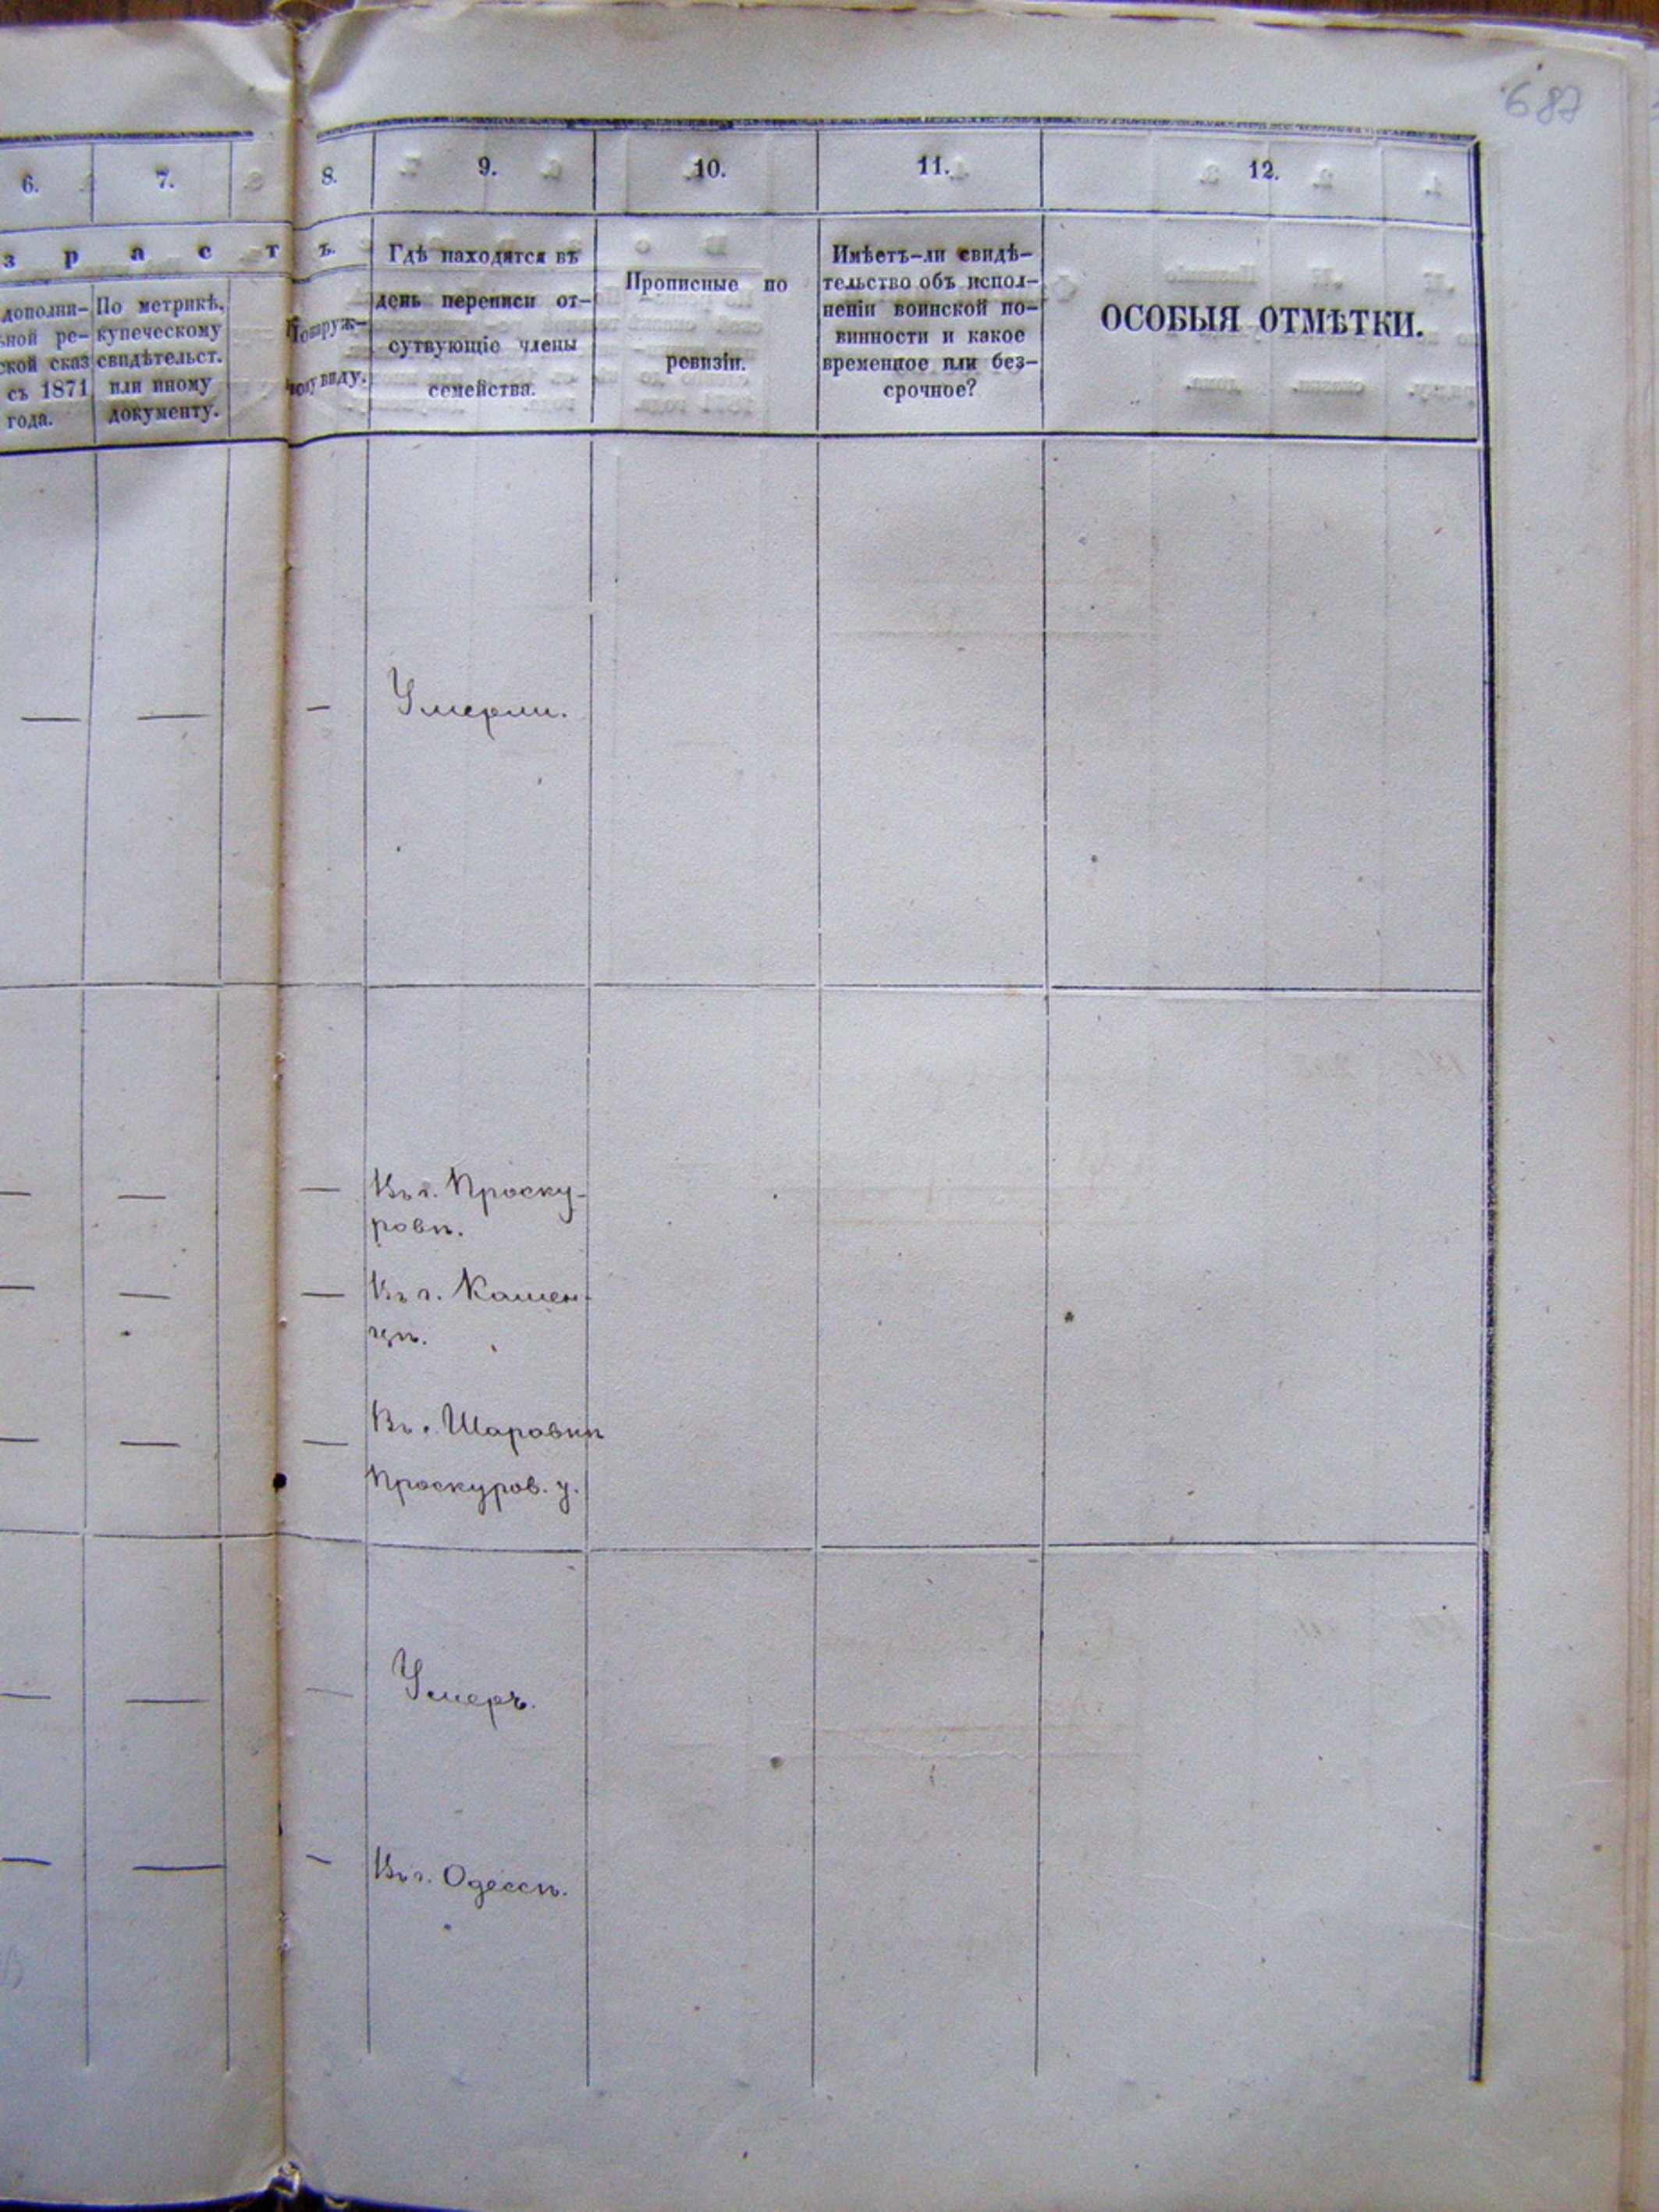 687
6.
7.
8.
9.
10.
11.
12.
з р а с т ъ.
дополни-
ной ре-
ской сказ
съ 1871
года.
По метрикѣ,
купеческому
свидѣтельст.
или иному
документу.
По наруж-
ному виду.
Гдѣ находятся въ
день переписи от-
сутвующіе члены
семейства.
Прописные по
ревизіи.
Имѣетъ-ли свидѣ-
тельство объ испол-
неніи воинской по-
винности и какое
временное или без-
срочное?
ОСОБЫЯ ОТМѢТКИ.
— — — Умерли.
— — — Въ г. Проску-
ровѣ.
— — — Въ г. Камен-
цѣ.
— — — Въ. Шаровкѣ
Проскуров. у.
— — — Умеръ.
— — — Въ г. Одессѣ.